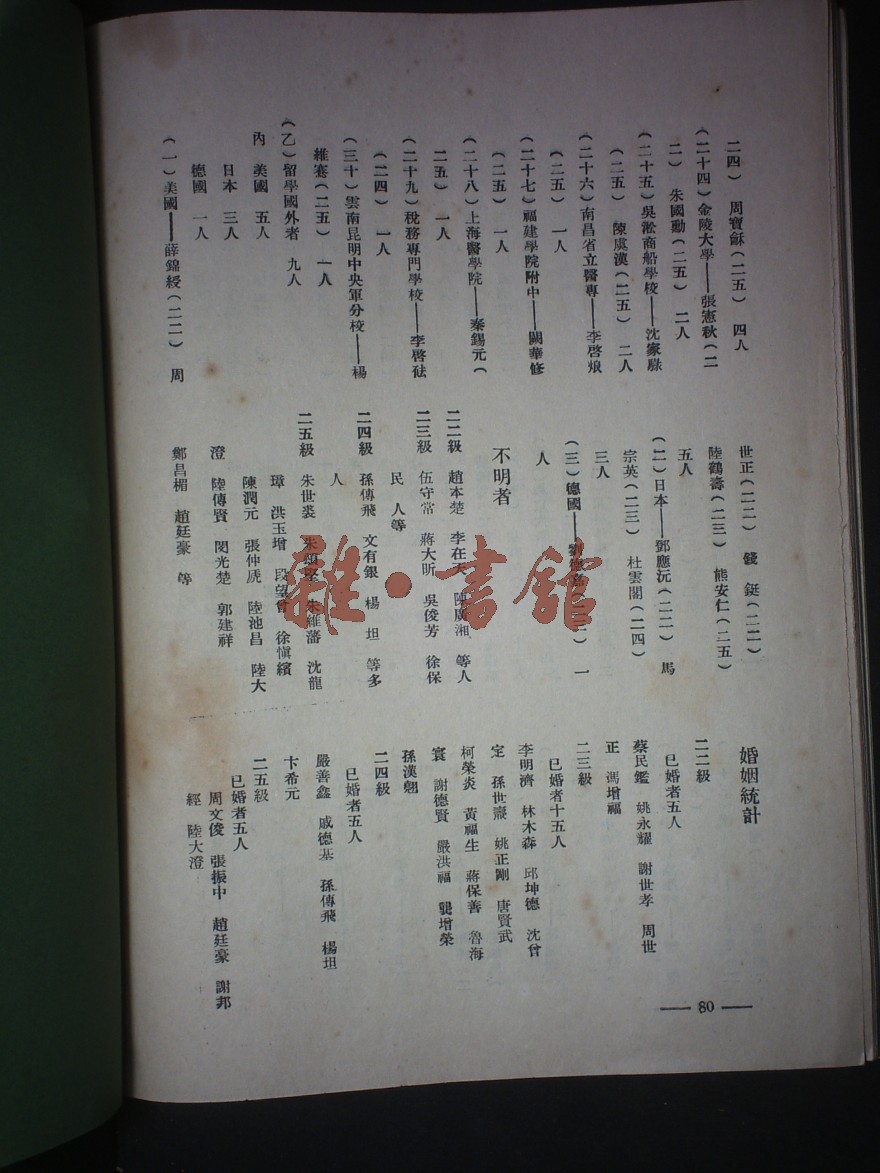 二四) 周寶龢(二五) 四人
(二十四)金陵大學——張憲秋(二
二) 朱國勳(二五) 二人
(二十五)吳淞商船學校——沈家騄
(二五) 陳虞漢(二五) 二人
(二十六)南昌省立醫專——李啓烺
(二五) 一人
(二十七)福建學院附中——關華修
(二五) 一人
(二十八)上海醫學院——秦錫元(
二五) 一人
(二十九)稅務專門學校——李啓砝
(二四) 一人
(三十)雲南昆明中央軍分校——楊
維騫(二五) 一人
(乙)留學國外者 九人
內 美國 五人
日本 三人
德國 一人
(一)美國——薛錦綬(二二) 周
世正(二二) 錢 鋌(二二)
陸鶴壽(二三) 熊安仁(二五)
五人
(二)日本——鄧應沅(二二) 馬
宗英(二三) 杜雲閣(二四)
三人
(三)德國——劉 一
人
不明者
二二級 趙本楚 李在 陳廣湘 等人
二三級 伍守常 蔣大昕 吳俊芳 徐保
民 人等
二四級 孫傳飛 文有銀 楊 坦 等多
人
二五級 朱世裘 朱頌 朱維藩 沈龍
璋 洪玉增 段望 徐愼繽
陳潤元 張仲虒 陸池昌 陸大
澄 陸傳賢 閔光楚 郭建祥
鄭昌楣 趙廷豪 等
婚姻統計
二二級
已婚者五人
蔡民鑑 姚永耀 謝世孝 周世
正 馮增福
二三級
已婚者十五人
李明濟 林木森 邱坤德 沈曾
定 孫世巖 姚正剛 唐賢武
柯榮炎 黃福生 蔣保善 魯海
寰 謝德賢 嚴洪福 龔增榮
孫漢翹
二四級
已婚者五人
嚴善鑫 戚德基 孫傳飛 楊坦
卞希元
二五級
已婚者五人
周文俊 張振中 趙廷豪 謝邦
經 陸大澄
— 80 —
雜·書館